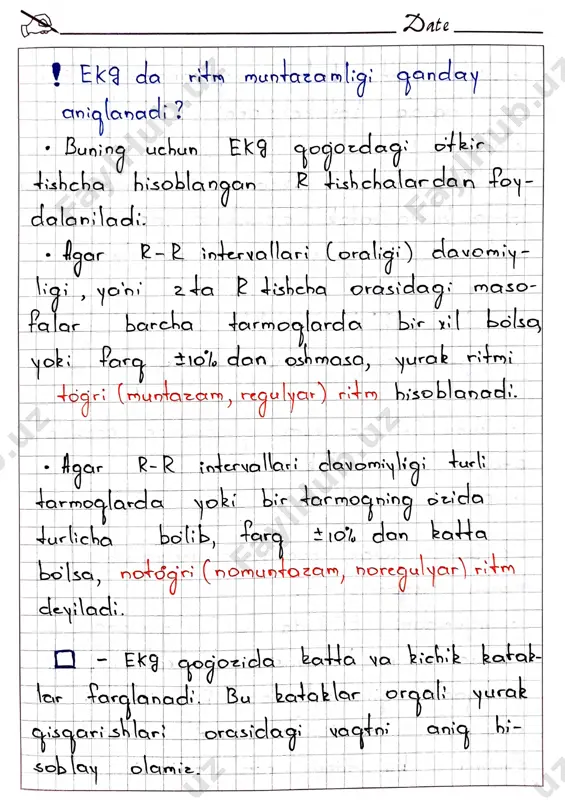 Date
! EKg da ritm muntazamligi qanday
aniqlanadi?
• Buning uchun EKg qogozdagi o'tkir
tishcha hisoblangan R tishchalardan foy-
dalaniladi.
• Agar R-R intervallari (oraligi) davomiy-
ligi, ya'ni 2 ta R tishcha orasidagi maso-
falar barcha tarmoqlarda bir xil bo'lsa,
yoki farq ±10% dan oshmasa, yurak ritmi
to'g'ri (muntazam, regulyar) ritm hisoblanadi.
• Agar R-R intervallari davomiyligi turli
tarmoqlarda yoki bir tarmoqning o'zida
turlicha bo'lib, farq ±10% dan katta
bo'lsa, noto'g'ri (nomuntazam, noregulyar) ritm
deyiladi.
□ - EKg qogozida katta va kichik katak-
lar farqlanadi. Bu kataklar orqali yurak
qisqarishlari orasidagi vaqtni aniq hi-
soblay olamiz.
FaylHub.uz
FaylHub.uz
FaylHub.uz
FaylHub.uz